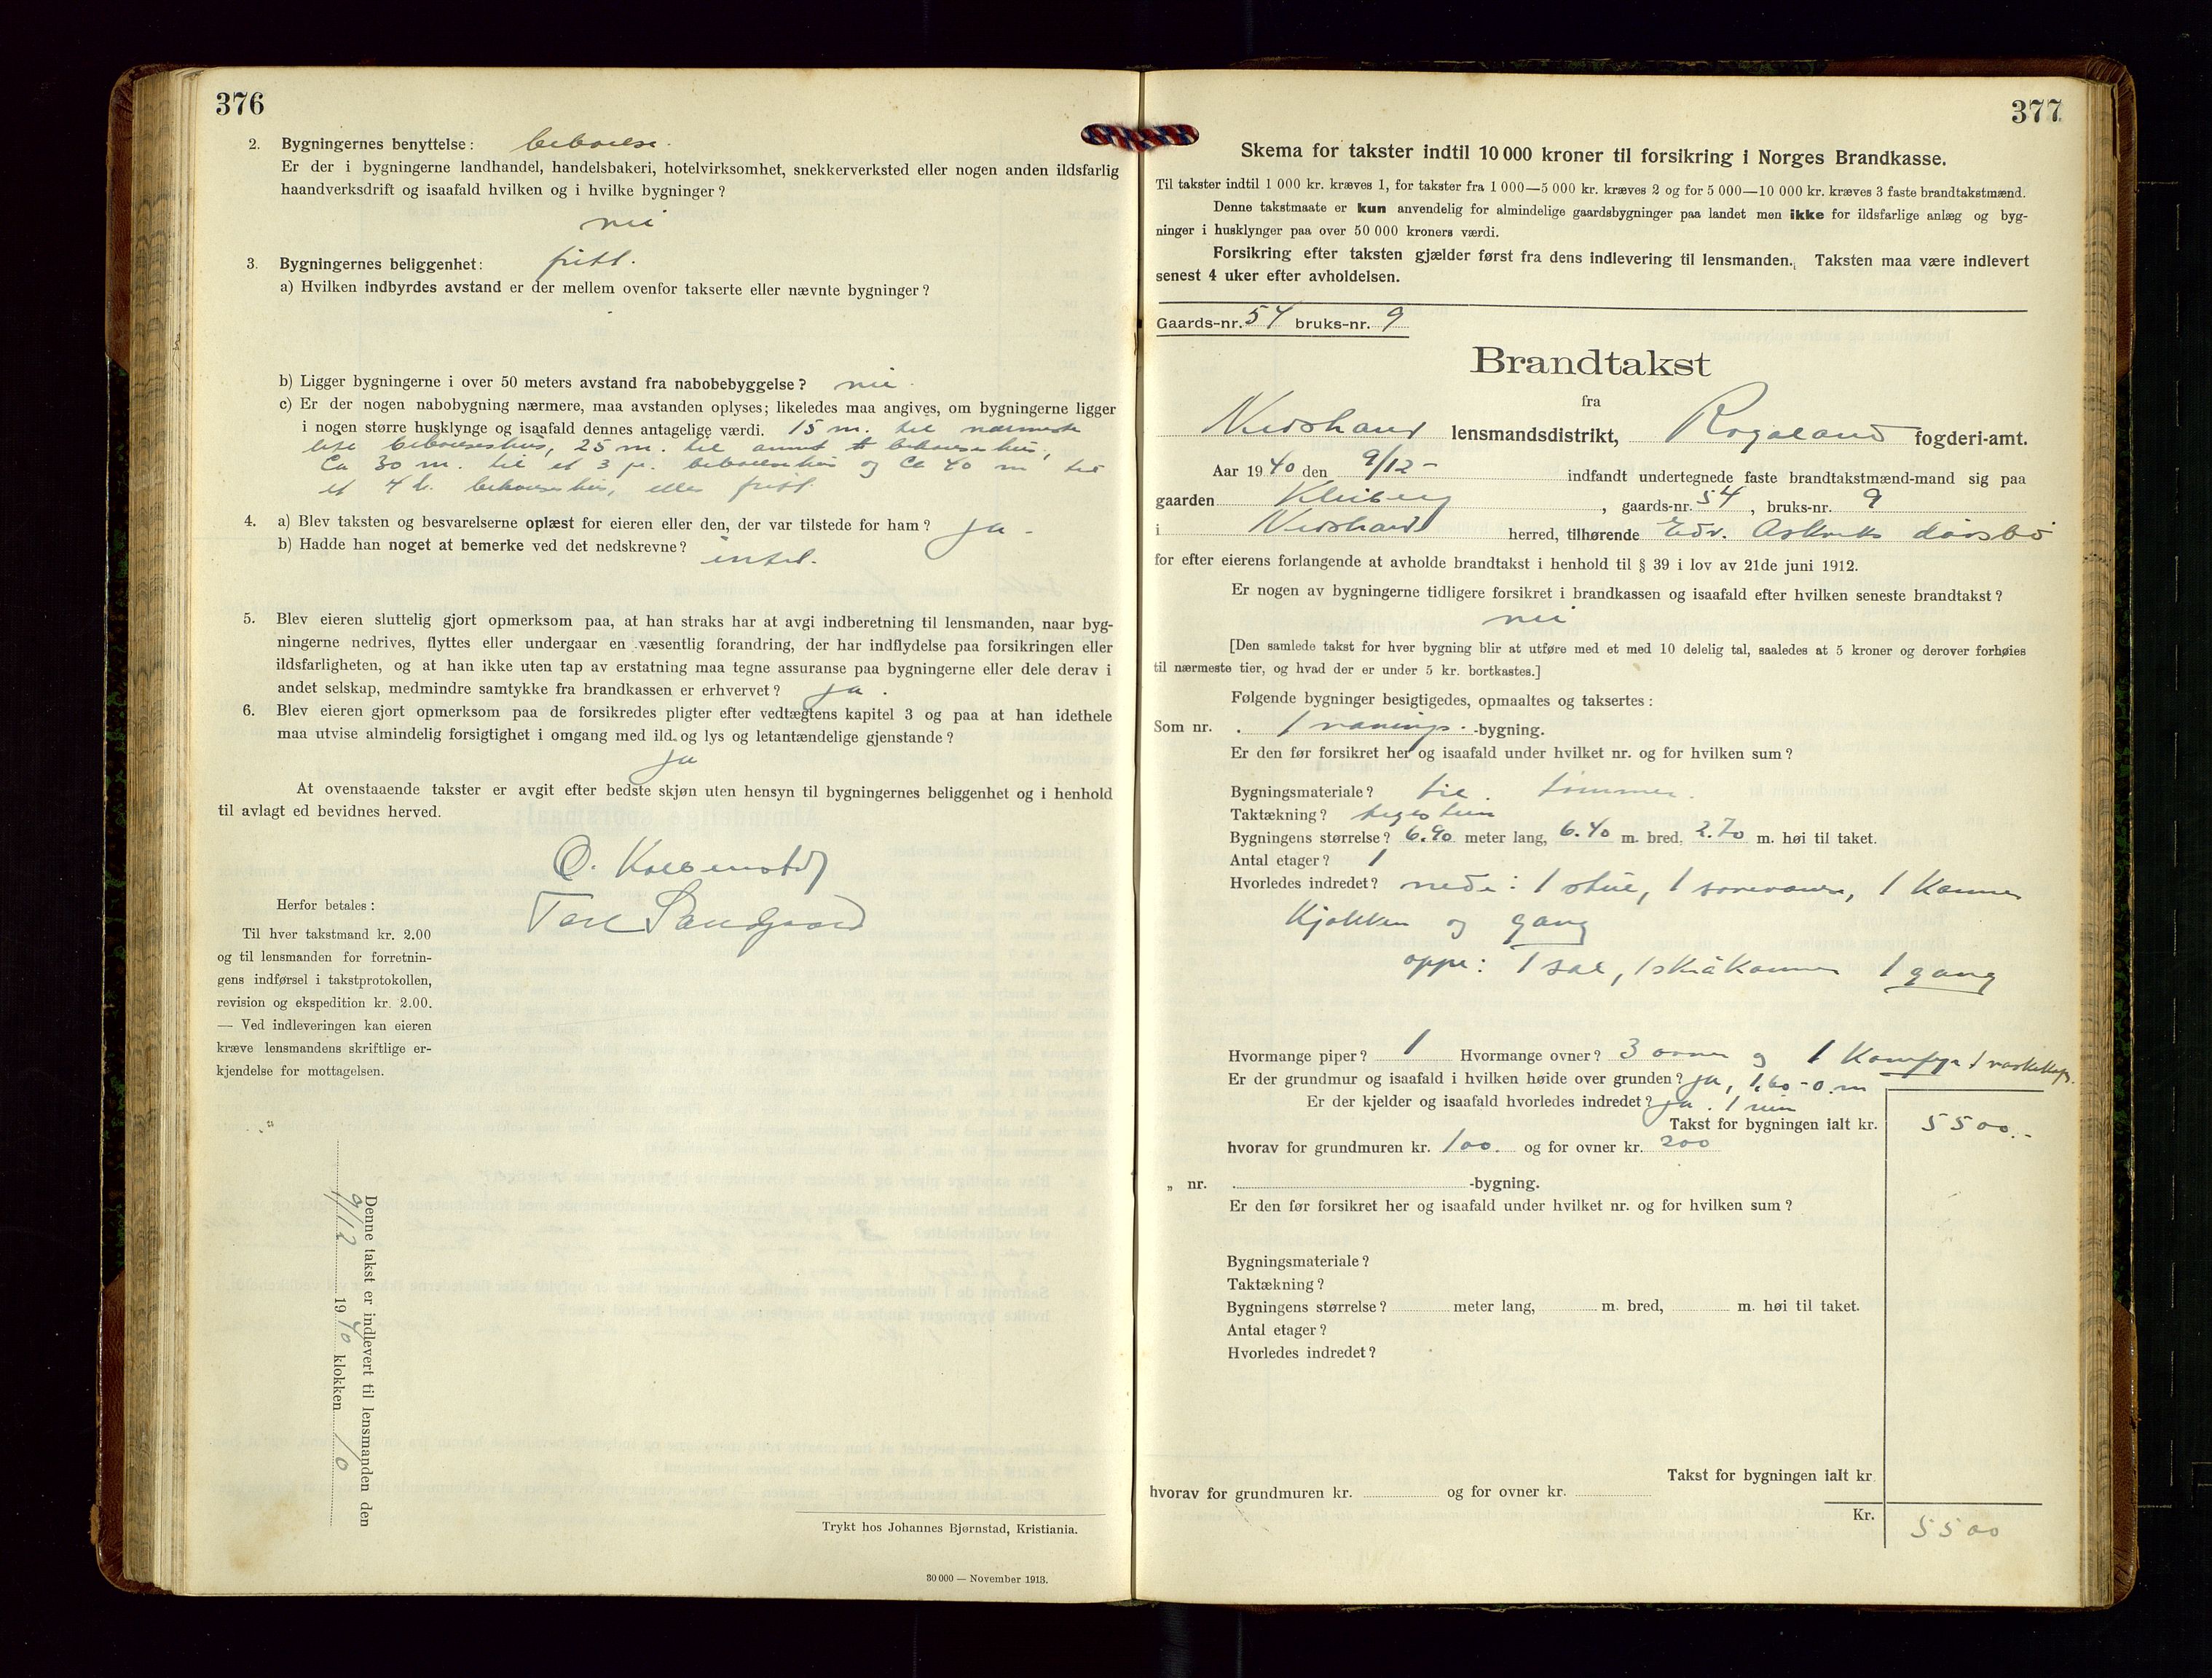 376
2. Bygningernes benyttelse: beboelse.
Er der i bygningerne landhandel, handelsbakeri, hotelvirksomhet, snekkerverksted eller nogen anden ildsfarlig
haandverksdrift og isaafald hvilken og i hvilke bygninger?
nei
3. Bygningernes beliggenhet: fritt.
a) Hvilken indbyrdes avstand er der mellem ovenfor takserte eller nævnte bygninger?
b) Ligger bygningerne i over 50 meters avstand fra nabobebyggelse? nei.
c) Er der nogen nabobygning nærmere, maa avstanden oplyses; likeledes maa angives, om bygningerne ligger
i nogen større husklynge og isaafald dennes antagelige værdi. 15 m. til nærmeste
beboelseshus, 25 m. til annet beboelseshus,
Ca 30 m. til et 3 je. beboelseshus og Ca 40 m til
et 4 de. beboelseshus, eller fritt.
4. a) Blev taksten og besvarelserne oplæst for eieren eller den, der var tilstede for ham? Ja -
b) Hadde han noget at bemerke ved det nedskrevne? intet.
5. Blev eieren sluttelig gjort opmerksom paa, at han straks har at avgi indberetning til lensmanden, naar byg-
ningerne nedrives, flyttes eller undergaar en væsentlig forandring, der har indflydelse paa forsikringen eller
ildsfarligheten, og at han ikke uten tap av erstatning maa tegne assuranse paa bygningerne eller dele derav i
andet selskap, medmindre samtykke fra brandkassen er erhvervet? ja.
6. Blev eieren gjort opmerksom paa de forsikredes pligter efter vedtægtens kapitel 3 og paa at han idethele
maa utvise almindelig forsigtighet i omgang med ild og lys og letantændelige gjenstande?
ja
At ovenstaaende takster er avgit efter bedste skjøn uten hensyn til bygningernes beliggenhet og i henhold
til avlagt ed bevidnes herved.
Herfor betales:
Til hver takstmand kr. 2.00
og til lensmanden for forretnin-
gens indførsel i takstprotokollen,
revision og ekspedition kr. 2.00.
— Ved indleveringen kan eieren
kræve lensmandens skriftlige er-
kjendelse for mottagelsen.
Denne takst er indlevert til lensmanden den
9/12 1940 klokken 10
Trykt hos Johannes Bjørnstad, Kristiania.
30 000 — November 1913.
377
Skema for takster indtil 10 000 kroner til forsikring i Norges Brandkasse.
Til takster indtil 1 000 kr. kræves 1, for takster fra 1 000—5 000 kr. kræves 2 og for 5 000—10 000 kr. kræves 3 faste brandtakstmænd.
Denne takstmaate er kun anvendelig for almindelige gaardsbygninger paa landet men ikke for ildsfarlige anlæg og byg-
ninger i husklynger paa over 50 000 kroners værdi.
Forsikring efter taksten gjælder først fra dens indlevering til lensmanden. Taksten maa være indlevert
senest 4 uker efter avholdelsen.
Gaards-nr. 54 bruks-nr. 9
Brandtakst
fra
Nedstrand lensmandsdistrikt, Rogaland fogderi-amt.
Aar 1940 den 9/12 - indfandt undertegnede faste brandtakstmænd-mand sig paa
gaarden Kleiberg, gaards-nr. 54, bruks-nr. 9
i Nedstrand herred, tilhørende Edv. Askvik
for efter eierens forlangende at avholde brandtakst i henhold til § 39 i lov av 21de juni 1912.
Er nogen av bygningerne tidligere forsikret i brandkassen og isaafald efter hvilken seneste brandtakst?
nei
[Den samlede takst for hver bygning blir at utføre med et med 10 delelig tal, saaledes at 5 kroner og derover forhøies
til nærmeste tier, og hvad der er under 5 kr. bortkastes.]
Følgende bygninger besigtigedes, opmaaltes og taksertes:
Som nr. 1 vaanings-bygning.
Er den før forsikret her og isaafald under hvilket nr. og for hvilken sum?
Bygningsmateriale? tre. tømmer.
Taktækning? teglstein
Bygningens størrelse? 6.90 meter lang, 6.40 m. bred, 2.70 m. høi til taket.
Antal etager? 1
Hvorledes indredet? nede: 1 stue, 1 soverom, 1 Kammer
Kjøkken og gang
oppe: 1 sal, 1 skråkammer 1 gang
Hvormange piper? 1 Hvormange ovner? 3 ovner og 1 Komfyr 1 vaskekjep.
Er der grundmur og isaafald i hvilken høide over grunden? ja, 1.60 - 0. m
Er der kjelder og isaafald hvorledes indredet? ja. 1 rum
Takst for bygningen ialt kr. 5500.-
hvorav for grundmuren kr. 100. og for ovner kr. 200
„ nr. -bygning.
Er den før forsikret her og isaafald under hvilket nr. og for hvilken sum?
Bygningsmateriale?
Taktækning?
Bygningens størrelse? meter lang, m. bred, m. høi til taket.
Antal etager?
Hvorledes indredet?
Takst for bygningen ialt kr.
hvorav for grundmuren kr. og for ovner kr.
Kr. 5500